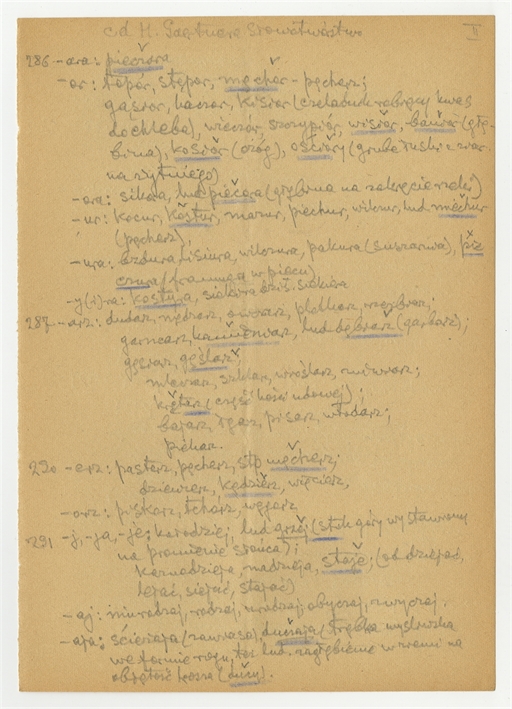 cd H. Gaertnera Słowotwórstwo II
286 -ara: pieczara
-or: topór, stępor, męchor - pęcherz;
gąsior, kaczor, kisior (czeladnik robiący kwas
do chleba), wieczór, szczypiór, wisior, banior (głę-
bina), kosior (ożóg), ościory (grube
na żytniego)
-ora: sikora, lud. pieczora (głębina na zakręcie rzeki)
-ur: kocur, kostur, mazur, piechur, wilczur, lud. mechur
(pęcherz),
-ura: bzdura, lisiura, wilczura, pakura (suszarnia), pie
czura (framuga w piecu),
-y(i)-ra: kostyra, siekira dziś. siekiera
287 -arz: dudarz, mędrarz, owczarz, plotkarz, rzeźbiarz;
garncarz, kamieniarz, lud. dębiarz (garbarz);
gęsiarz, gęślarz,
mleczarz, szklarz, wróżbiarz, winiarz;
kętarz (część kości udowej);
bajarz, łgarz, pisarz, włodarz;
piekarz.
290 -erz: pasterz, pęcherz, stp. mącherz;
dziewierz, kędzierz, więcierz,
-orz: piskorz, tchórz, węgorz
291 -j, -ja, -je: kołodziej, lud. grzej (stok góry wystawiony
na promienie słońca);
Karwodzieja, nadzieja, staje; (od dziejać,
lejać, siejać, stajać)
-aj: murzaj, rodzaj, urodzaj, obyczaj, zwyczaj.
-aja: ścieraja (zawłasa) duczaja (trąbka myśliwska
w formie rogu, też lud. zagłębienie w ziemi na
objętość kosza (duży).